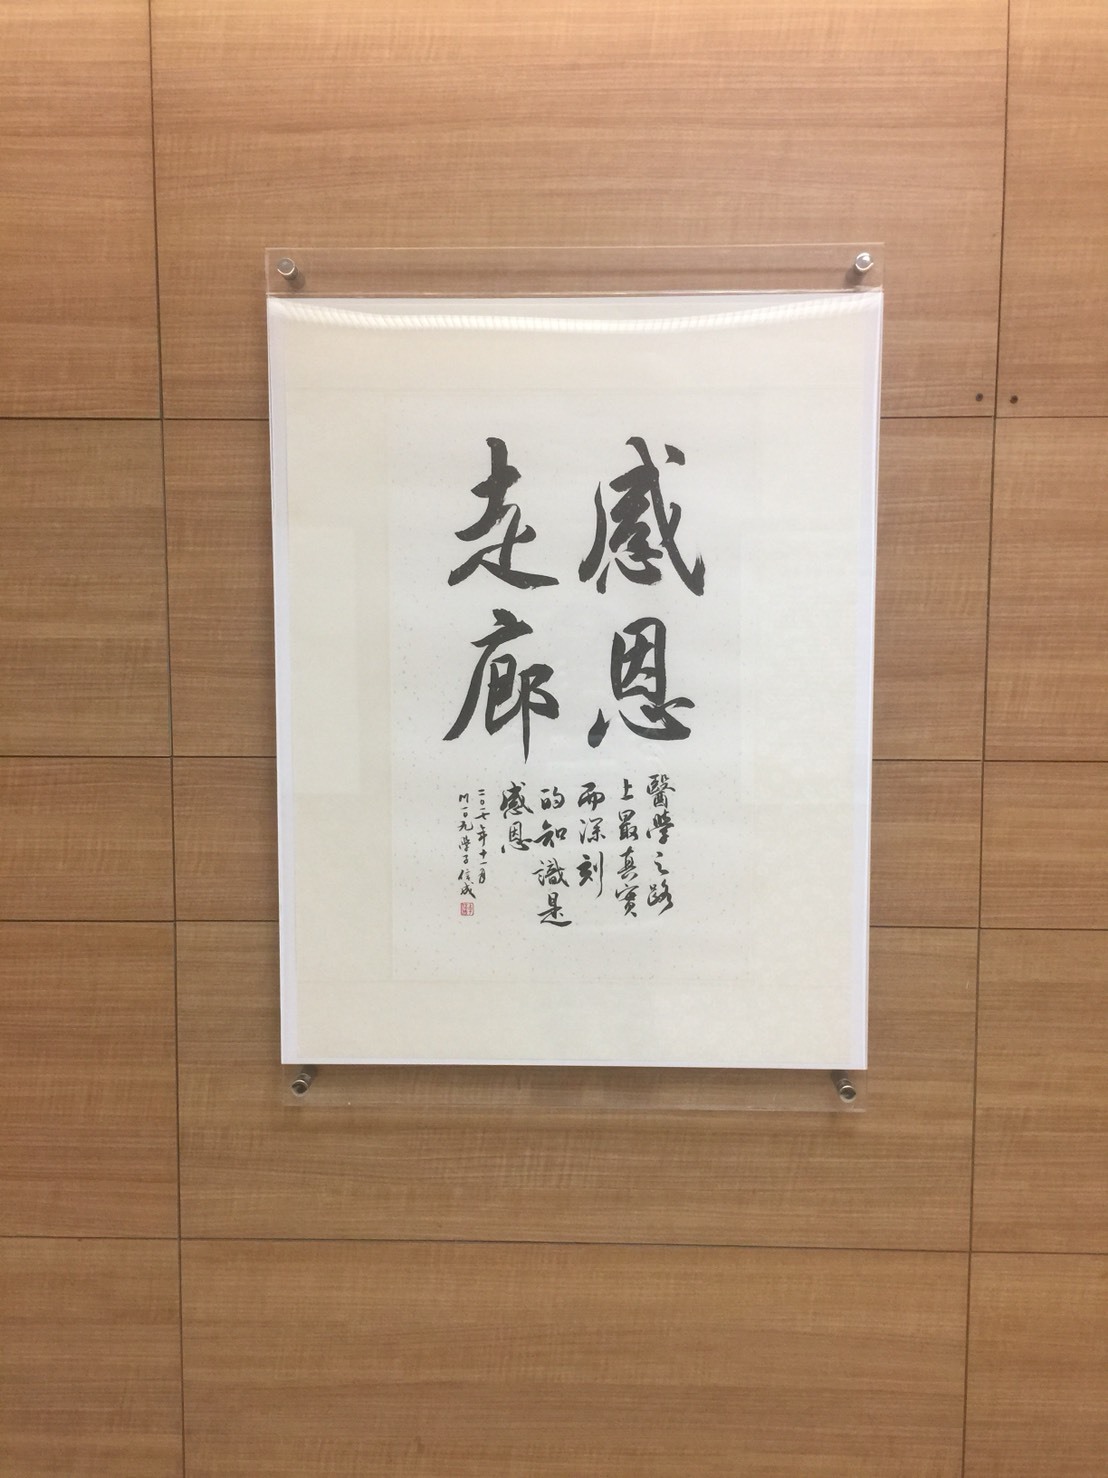 感恩
走廊
醫學之路
上最真實
而深刻
的知識是
感恩
二〇一七年十一月
M一〇九學子信成